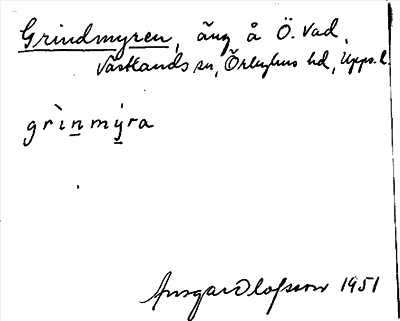 Grindmyren, äng å Ö. Vad,
Västlands sn, Örbyhus hd, Upps. l.
grìnmýra
Ansgar Olofsson 1951